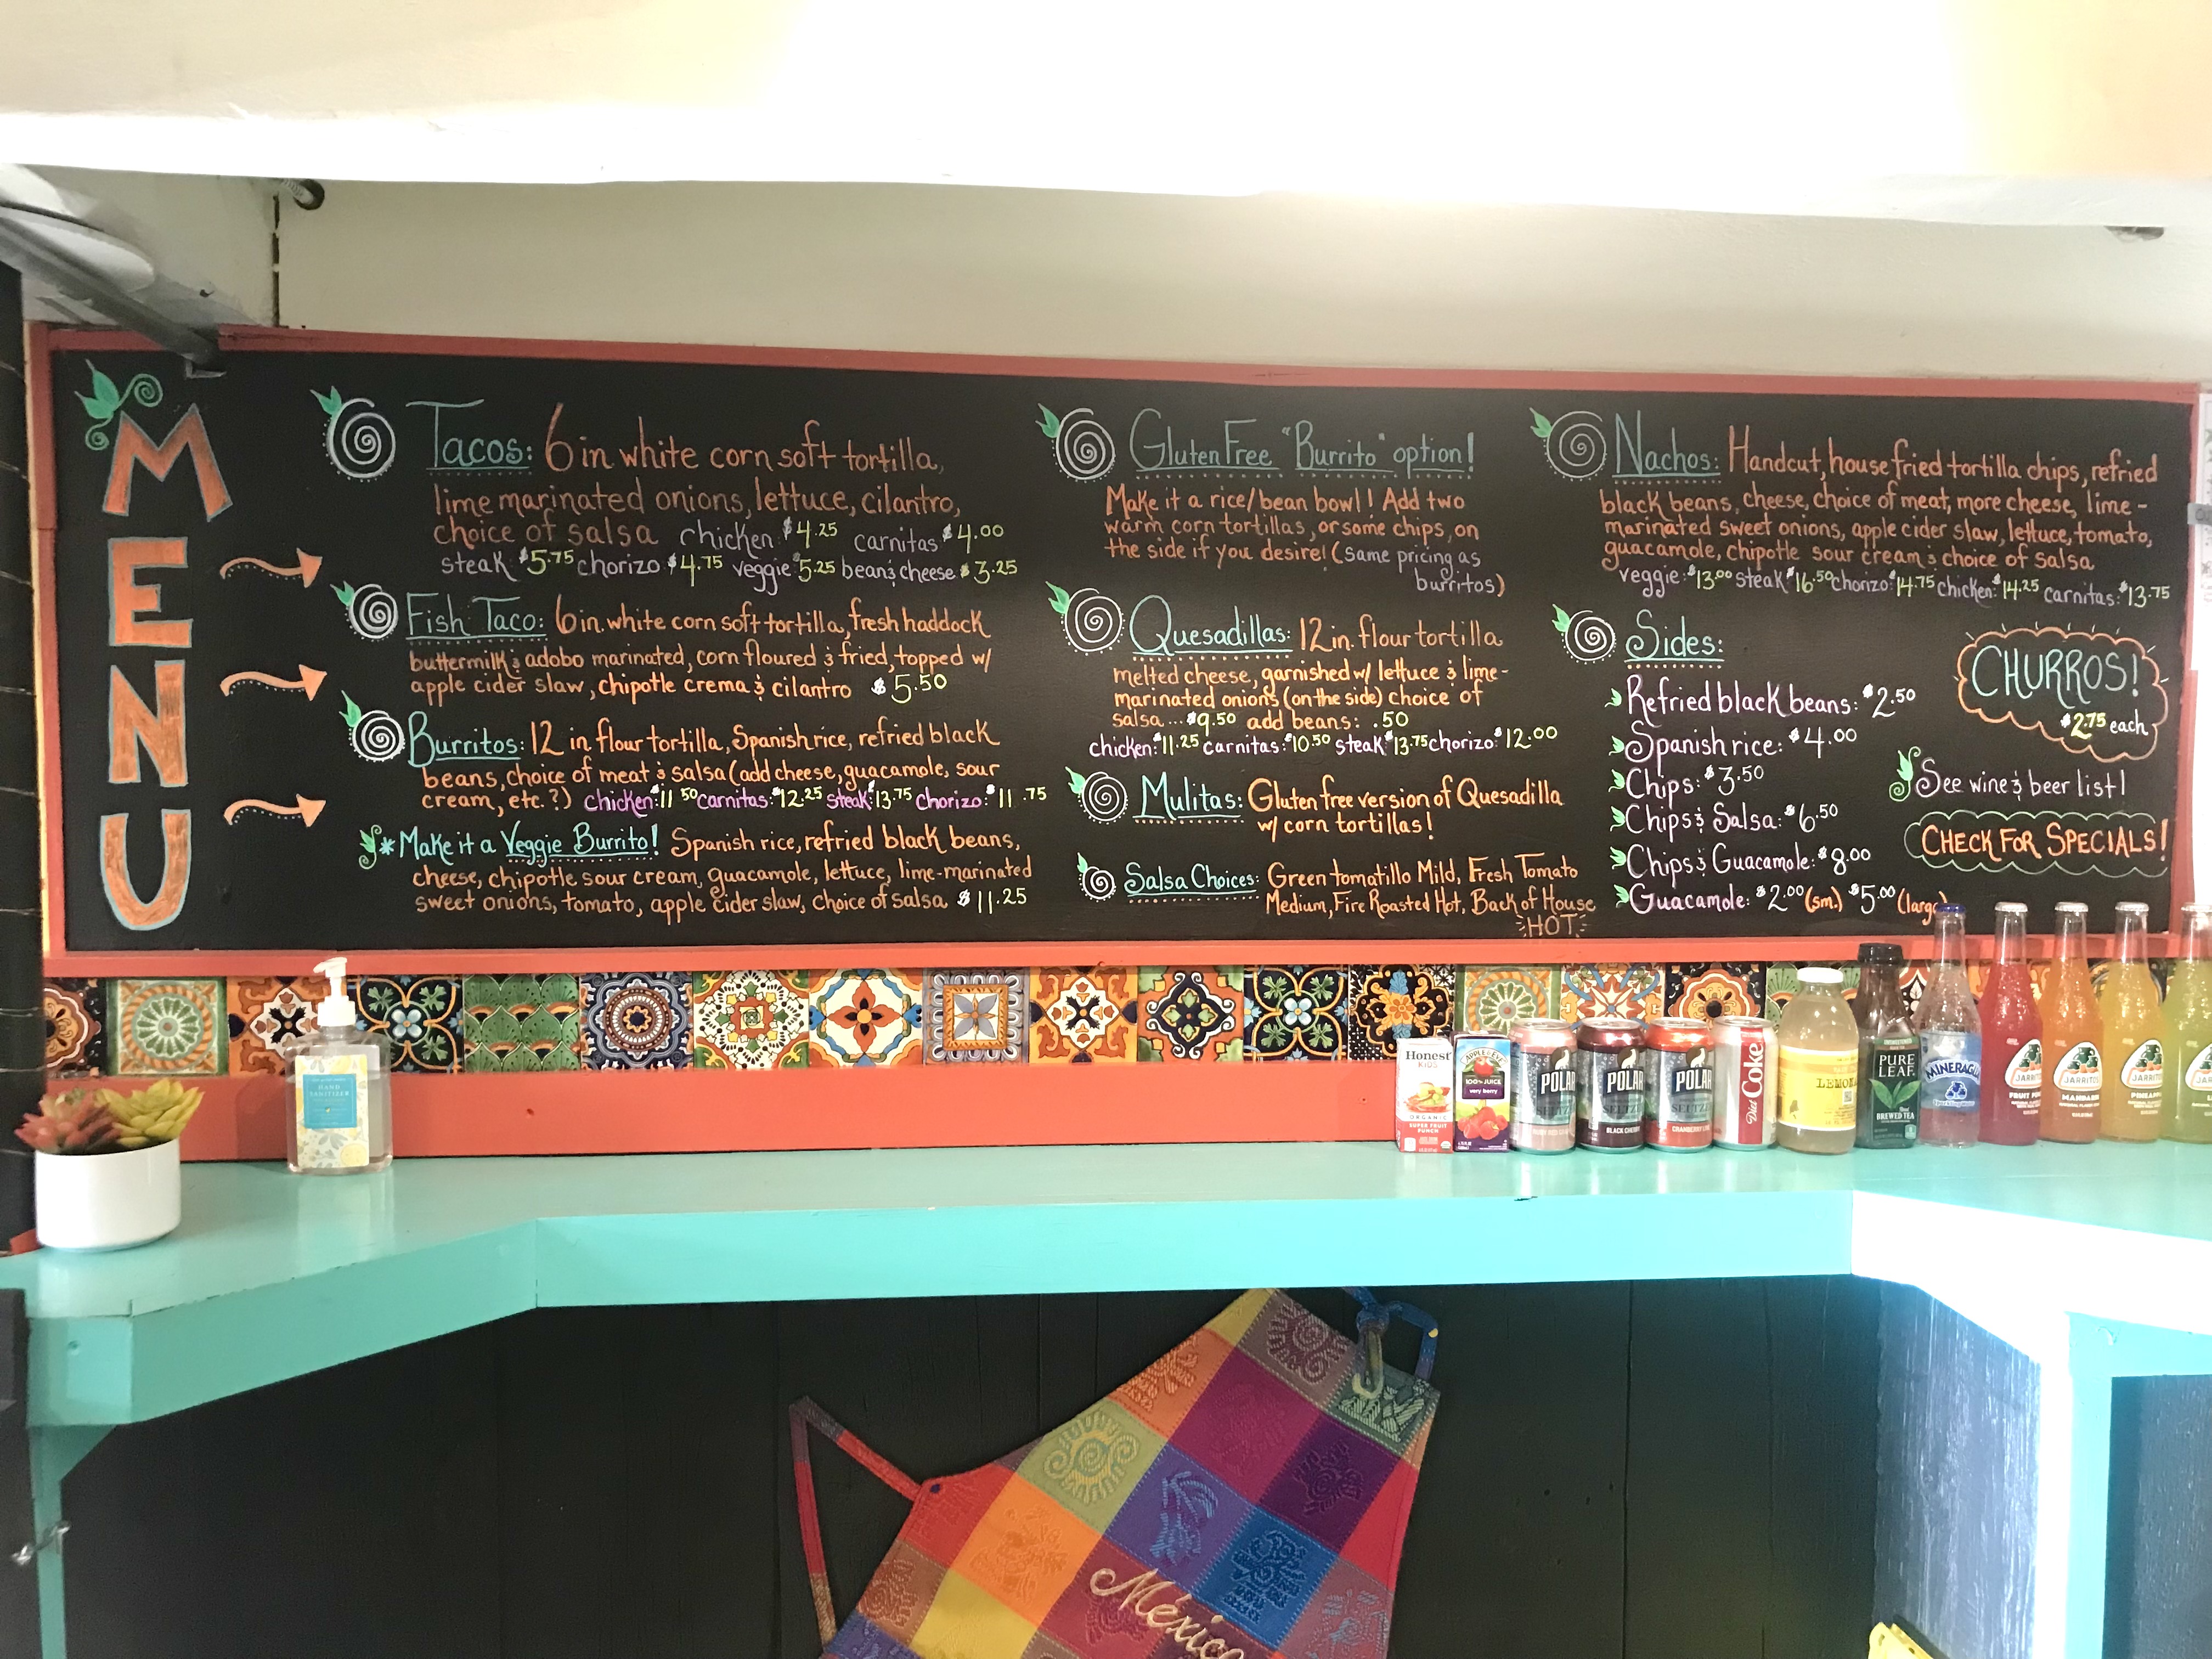 MENU
Tacos: 6 in white corn soft tortilla,
lime marinated onions, lettuce, cilantro,
choice of salsa chicken $4.25 carnitas $4.00
steak $5.75 chorizo $4.75 veggie $5.25 bean & cheese $3.25
Fish Taco: 6 in. white corn soft tortilla, fresh haddock
buttermilk & adobo marinated, corn floured & fried, topped w/
apple cider slaw, chipotle crema & cilantro $5.50
Burritos: 12 in flour tortilla, Spanish rice, refried black
beans, choice of meat & salsa (add cheese, guacamole, sour
cream, etc.?) chicken: $11.50 carnitas: $12.25 steak: $13.75 chorizo: $11.75
*Make it a Veggie Burrito! Spanish rice, refried black beans,
cheese, chipotle sour cream, guacamole, lettuce, lime-marinated
sweet onions, tomato, apple cider slaw, choice of salsa $11.25
Gluten Free "Burrito" option!
Make it a rice/bean bowl! Add two
warm corn tortillas, or some chips, on
the side if you desire! (same pricing as
burritos)
Quesadillas: 12 in. flour tortilla
melted cheese, garnished w/ lettuce & lime-
marinated onions (on the side) choice of
salsa... $9.50 add beans: .50
chicken: $11.25 carnitas: $10.50 steak: $13.75 chorizo: $12.00
Mulitas: Gluten free version of Quesadilla
w/ corn tortillas!
Salsa Choices: Green tomatillo Mild, Fresh Tomato
Medium, Fire Roasted Hot, Back of House
HOT
Nachos: Handcut, house fried tortilla chips, refried
black beans, cheese, choice of meat, more cheese, lime-
marinated sweet onions, apple cider slaw, lettuce, tomato,
guacamole, chipotle sour cream & choice of salsa
veggie: $13.00 steak $16.50 chorizo: $14.75 chicken: $14.25 carnitas: $13.75
Sides:
Refried black beans: $2.50
Spanish rice: $4.00
Chips: $3.50
Chips & Salsa: $6.50
Chips & Guacamole: $8.00
Guacamole: $2.00 (sm.) $5.00 (large)
CHURROS!
$2.75 each
See wine & beer list!
CHECK FOR SPECIALS!
HAND
SANITIZER
Honest
KIDS
ORGANIC
SUPER FRUIT
PUNCH
APPLE & EVE
100% JUICE
very berry
POLAR
SELTZER
POLAR
SELTZER
BLACK CHERRY
POLAR
SELTZER
CRANBERRY LIME
Diet Coke
PURE
LEAF
BREWED TEA
MINERAGUA
JARRITOS
FRUIT PUNCH
JARRITOS
MANDARIN
JARRITOS
PINEAPPLE
México